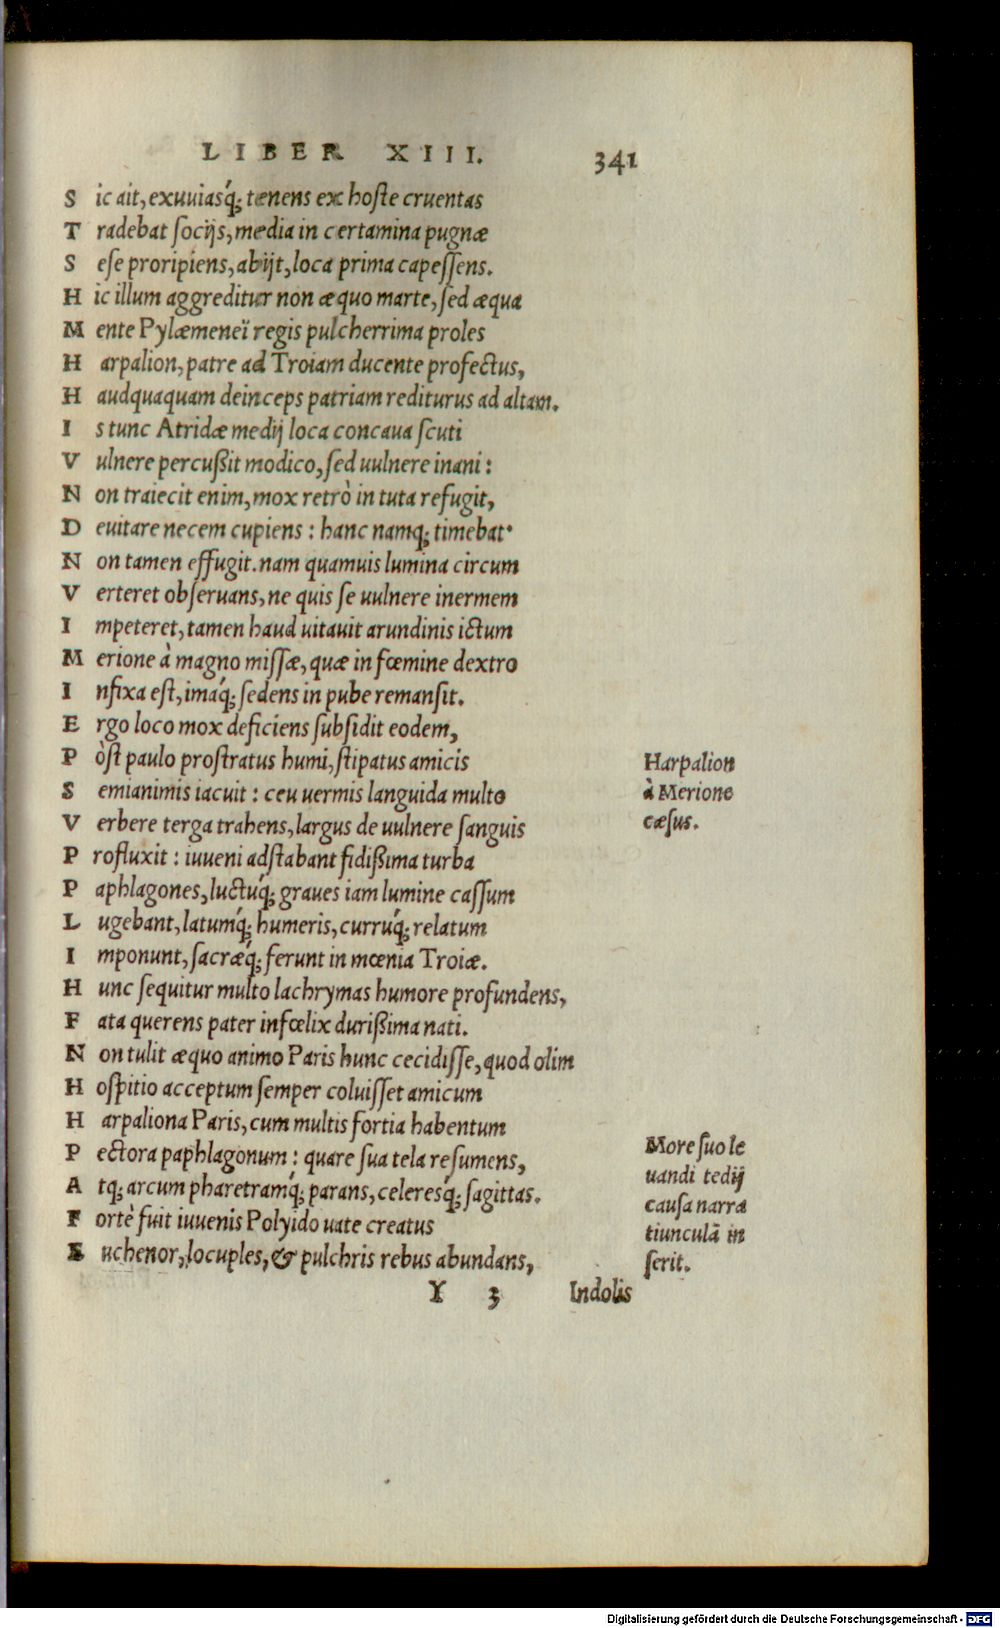 LIBER XIII. 341
Sic ait, exuuiasq́; tenens ex hoste cruentas
Tradebat socijs, media in certamina pugnæ
Sese proripiens, abijt, loca prima capessens.
Hic illum aggreditur non æquo marte, sed æqua
Mente Pylæmeneï regis pulcherrima proles
Harpalion, patre ad Troiam ducente profectus,
Haudquaquam deinceps patriam rediturus ad altam.
Is tunc Atridæ medij loca concaua scuti
Vulnere percußit modico, sed uulnere inani:
Non traiecit enim, mox retrò in tuta refugit,
Deuitare necem cupiens: hanc namq; timebat.
Non tamen effugit. nam quamuis lumina circum
Verteret obseruans, ne quis se uulnere inermem
Impeteret, tamen haud uitauit arundinis ictum
Merione à magno missæ, quæ in fœmine dextro
Infixa est, imaq́; sedens in pube remansit.
Ergo loco mox deficiens subsidit eodem,
Pòst paulo prostratus humi, stipatus amicis
Semianimis iacuit: ceu uermis languida multo
Verbere terga trahens, largus de uulnere sanguis
Profluxit: iuueni adstabant fidißima turba
Paphlagones, luctuq́; graues iam lumine cassum
Lugebant, latumq́; humeris, curruq́; relatum
Imponunt, sacræq́; ferunt in mœnia Troiæ.
Hunc sequitur multo lachrymas humore profundens,
Fata querens pater infœlix durißima nati.
Non tulit æquo animo Paris hunc cecidisse, quod olim
Hospitio acceptum semper coluisset amicum
Harpaliona Paris, cum multis fortia habentum
Pectora paphlagonum: quare sua tela resumens,
Atq; arcum pharetramq́; parans, celeresq́; sagittas.
Fortè fuit iuuenis Polyido uate creatus
Euchenor, locuples, & pulchris rebus abundans,
Harpalion
à Merione
cæsus.
More suo le
uandi tedij
causa narra
tiunculã in
serit.
Y 3 Indolis
Digitalisierung gefördert durch die Deutsche Forschungsgemeinschaft - DFG